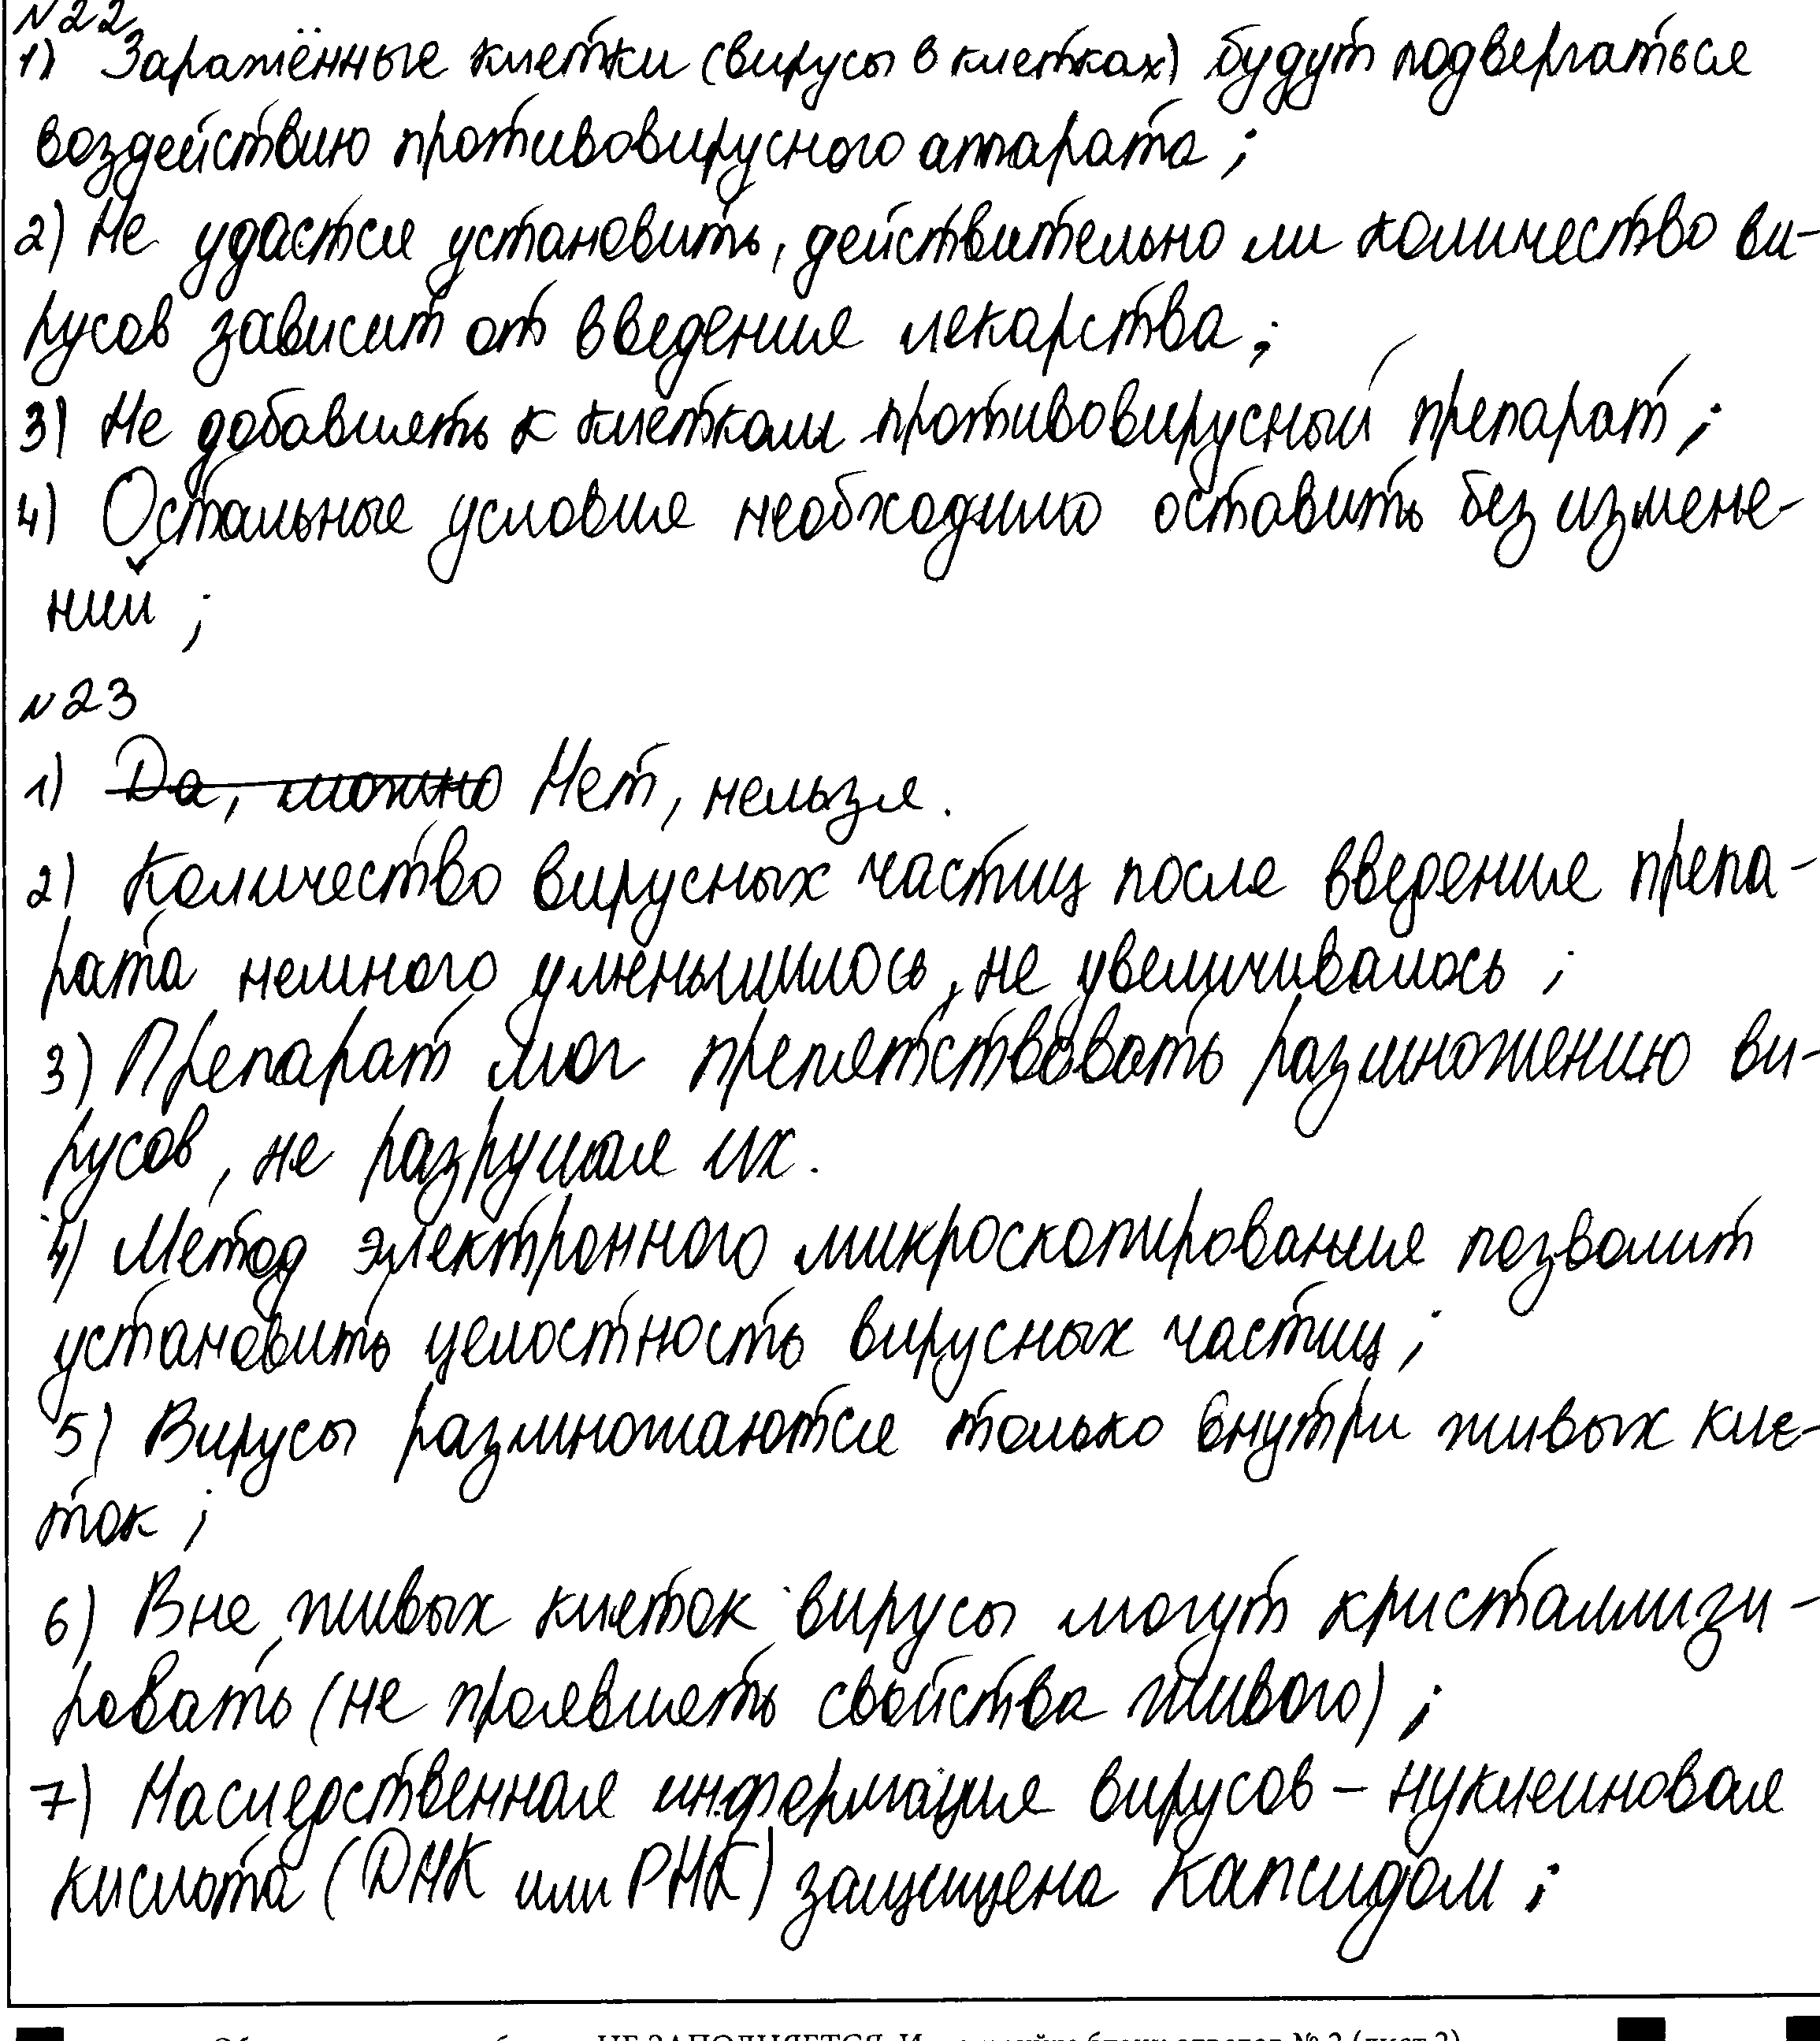 №22
1) Заражённые клетки (вирусы в клетках) будут подвергаться
воздействию противовирусного аппарата;
2) Не удастся установить, действительно ли количество ви-
русов зависит от введения лекарства;
3) Не добавлять к клеткам противовирусный препарат;
4) Остальные условия необходимо оставить без измене-
ний;
№23
1) Да, можно Нет, нельзя.
2) Количество вирусных частиц после введения препа-
рата немного уменьшилось, не увеличивалось;
3) Препарат мог препятствовать размножению ви-
русов, не разрушая их.
4) Метод электронного микроскопирования позволит
установить целостность вирусных частиц;
5) Вирусы размножаются только внутри живых кле-
ток;
6) Вне живых клеток вирусы могут кристаллизи-
ровать (не проявлять свойства живого);
7) Наследственная информация вирусов – нуклеиновая
кислота (ДНК или РНК) защищена капсидом;
НЕ ЗАПОЛНЯЕТСЯ.
№ 2 (лист 2)